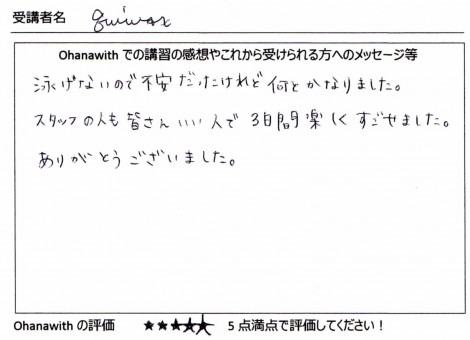 受講者名
Ohanawith での講習の感想やこれから受けられる方へのメッセージ等
泳げないので不安だったけれど何とかなりました。
スタッフの人も皆さんいい人で3日間楽しくすごせました。
ありがとうございました。
Ohanawith の評価 ★★★★★ 5 点満点で評価してください!